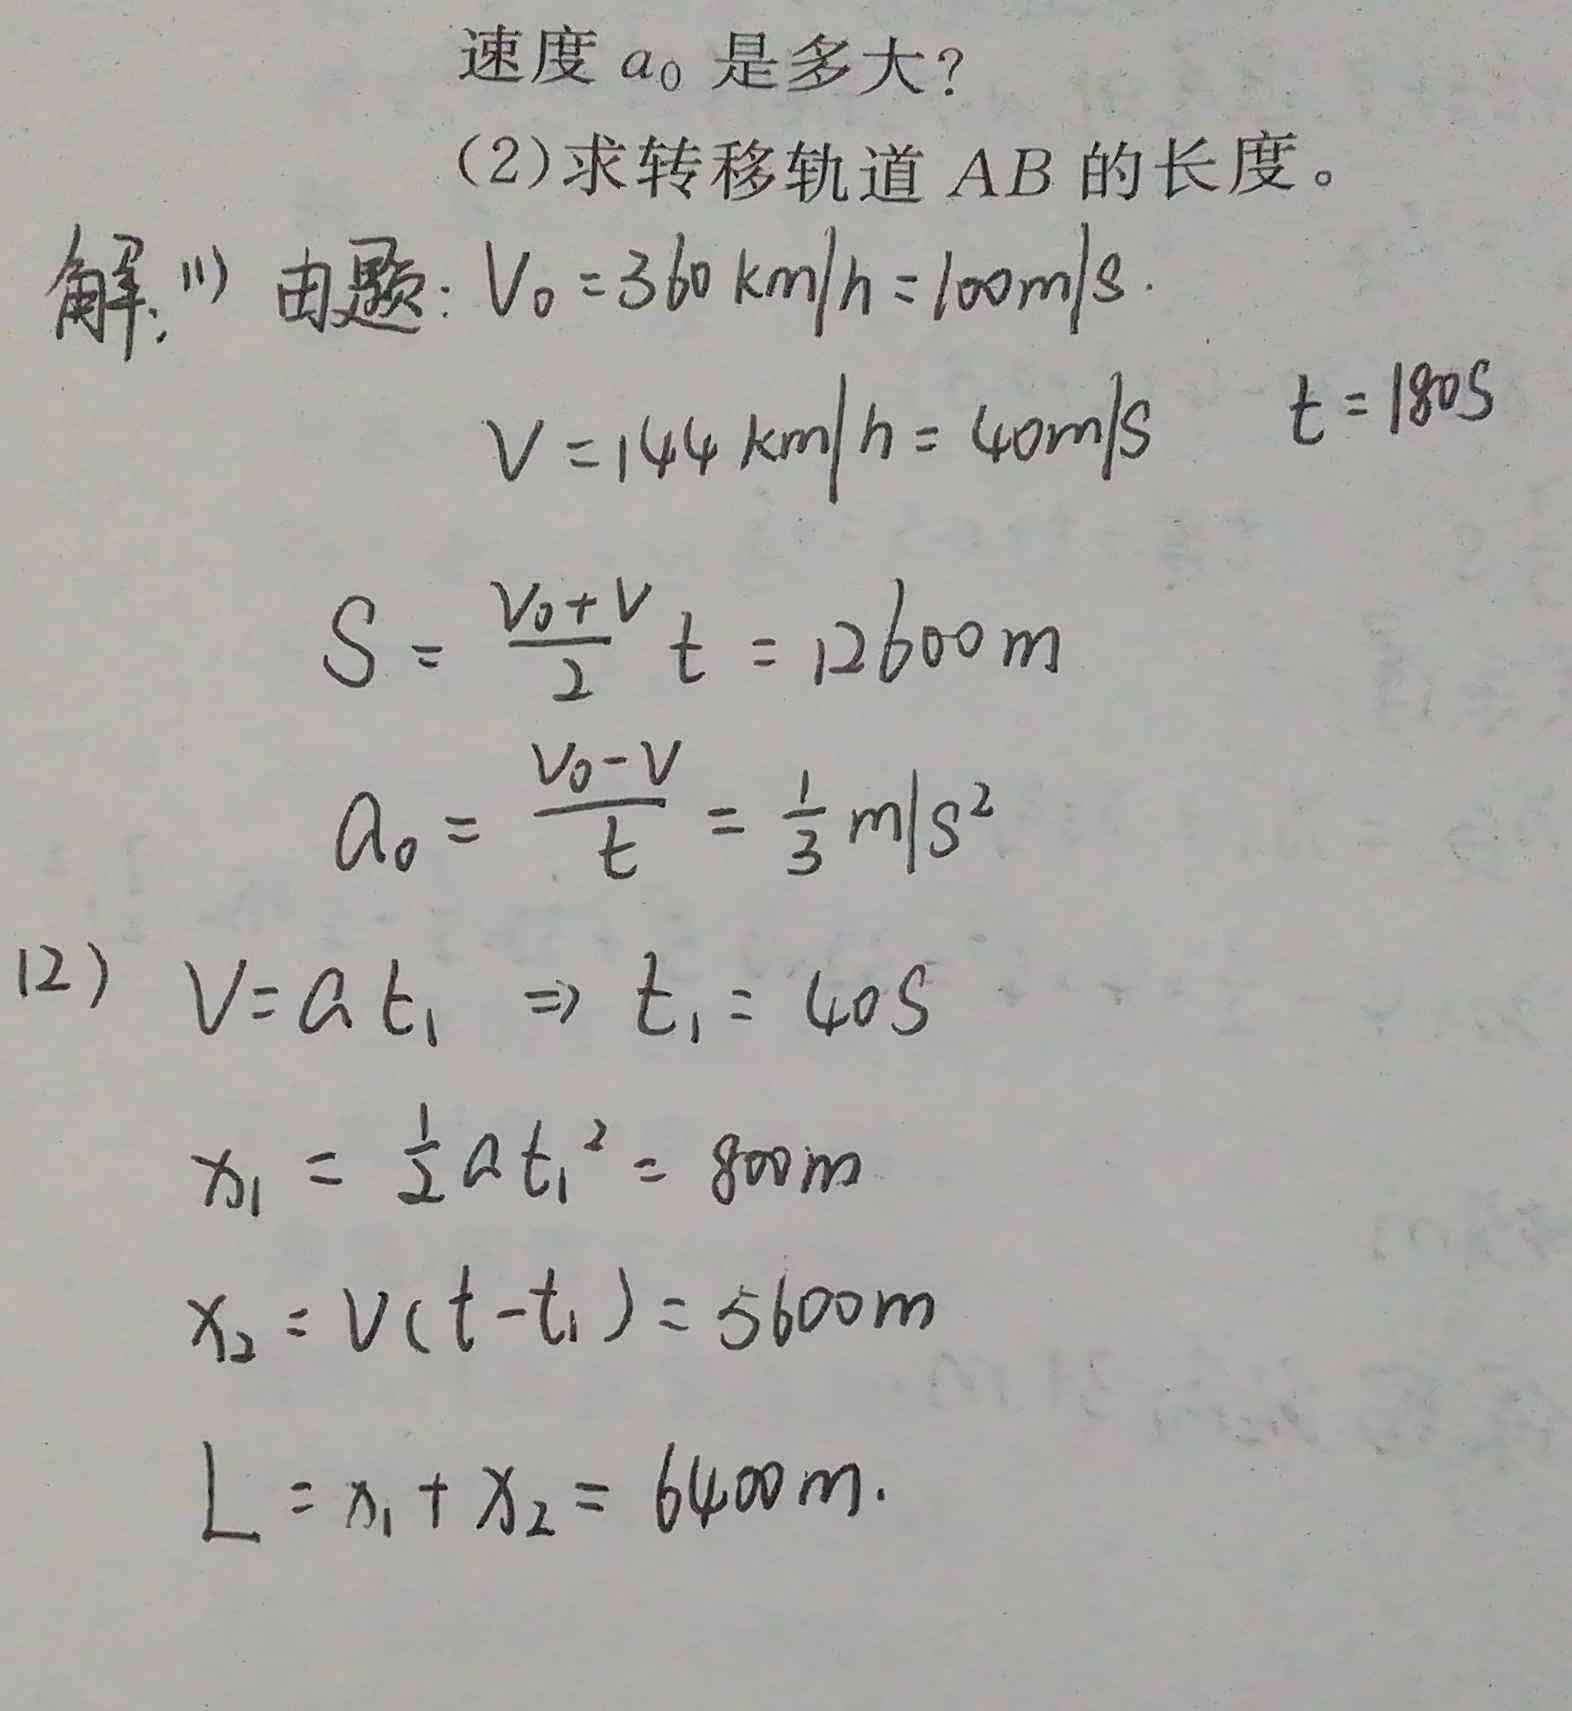 速度 a₀ 是多大?
(2)求转移轨道 AB 的长度。
解: (1) 由题: V₀ = 360 km/h = 100m/s.
V = 144 km/h = 40m/s t = 180s
S = (V₀+V)/2 t = 12600m
a₀ = (V₀-V)/t = 1/3 m/s²
(2) V = a t₁ ⇒ t₁ = 40s
x₁ = 1/2 a t₁² = 800m
x₂ = V(t-t₁) = 5600m
L = x₁ + x₂ = 6400m.